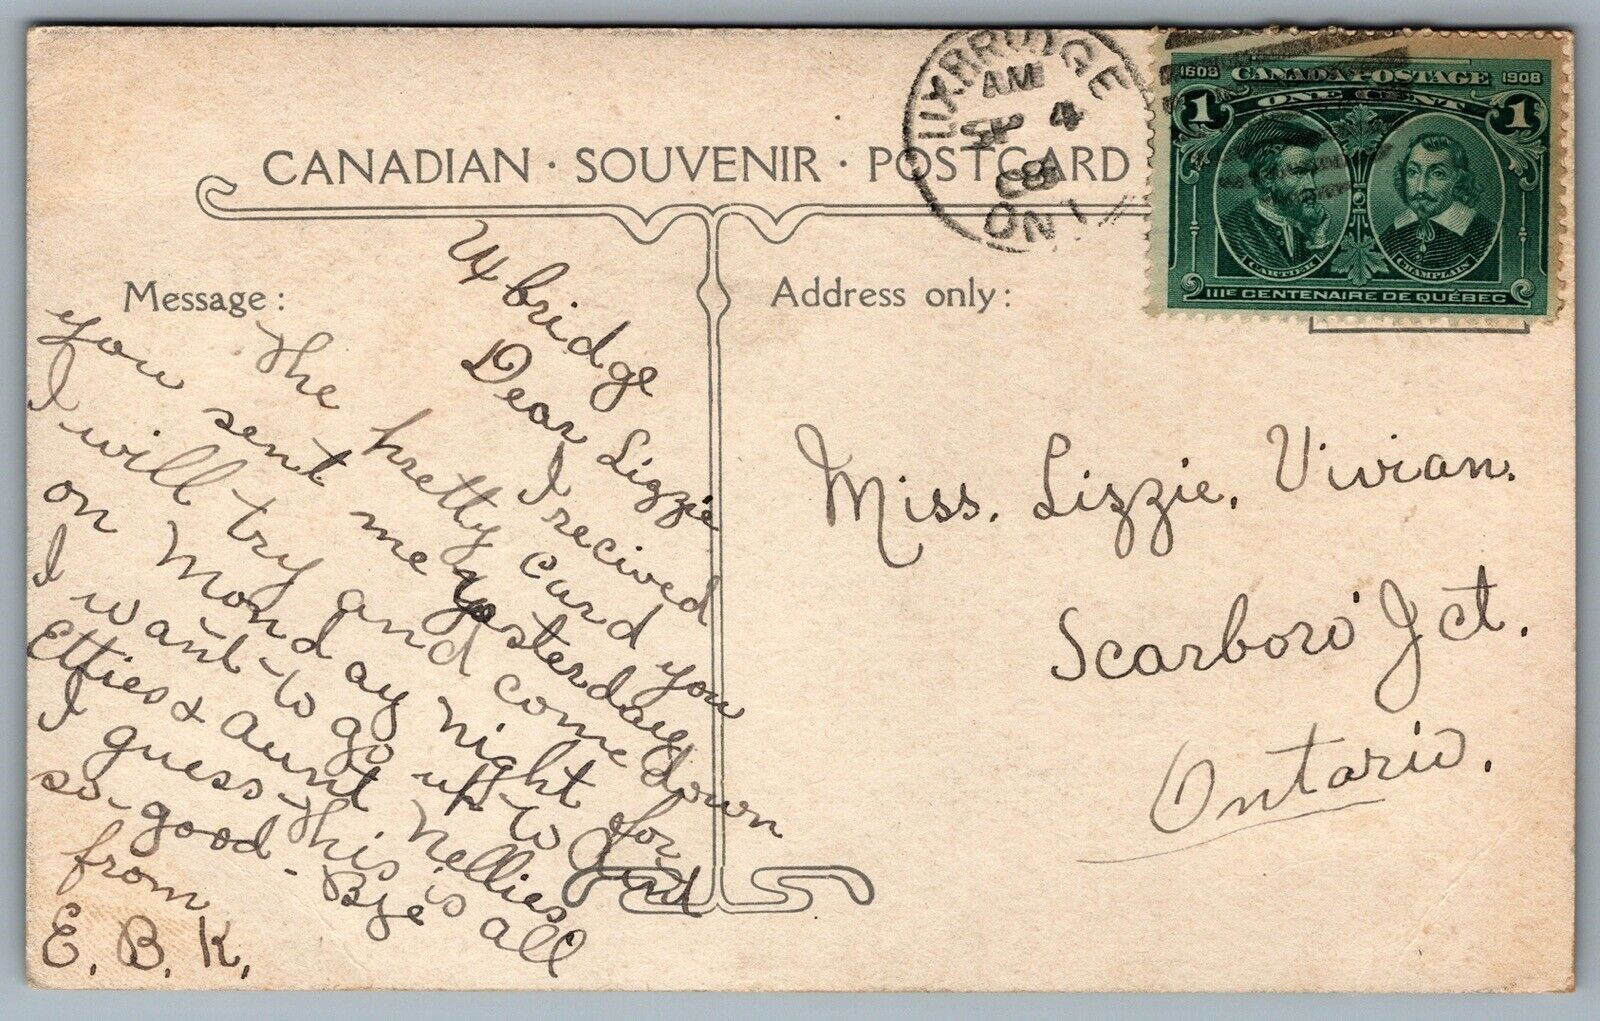 CANADIAN · SOUVENIR · POSTCARD
UXBRIDGE
AM
SP 4
08
ONT
1608 CANADA POSTAGE 1908
1 ONE CENT 1
CARTIER CHAMPLAIN
IIIE CENTENAIRE DE QUÉBEC
Message:
Uxbridge
Dear Lizzie
I recived
the pretty card you
you sent me yesterday
I will try and come down
on Monday night for
I want to go up to
Effies & Aunt Nellies
I guess this is all
so good-Bye
from
E. B. K.
Address only:
Miss. Lizzie. Vivian.
Scarboro' Jct.
Ontario.